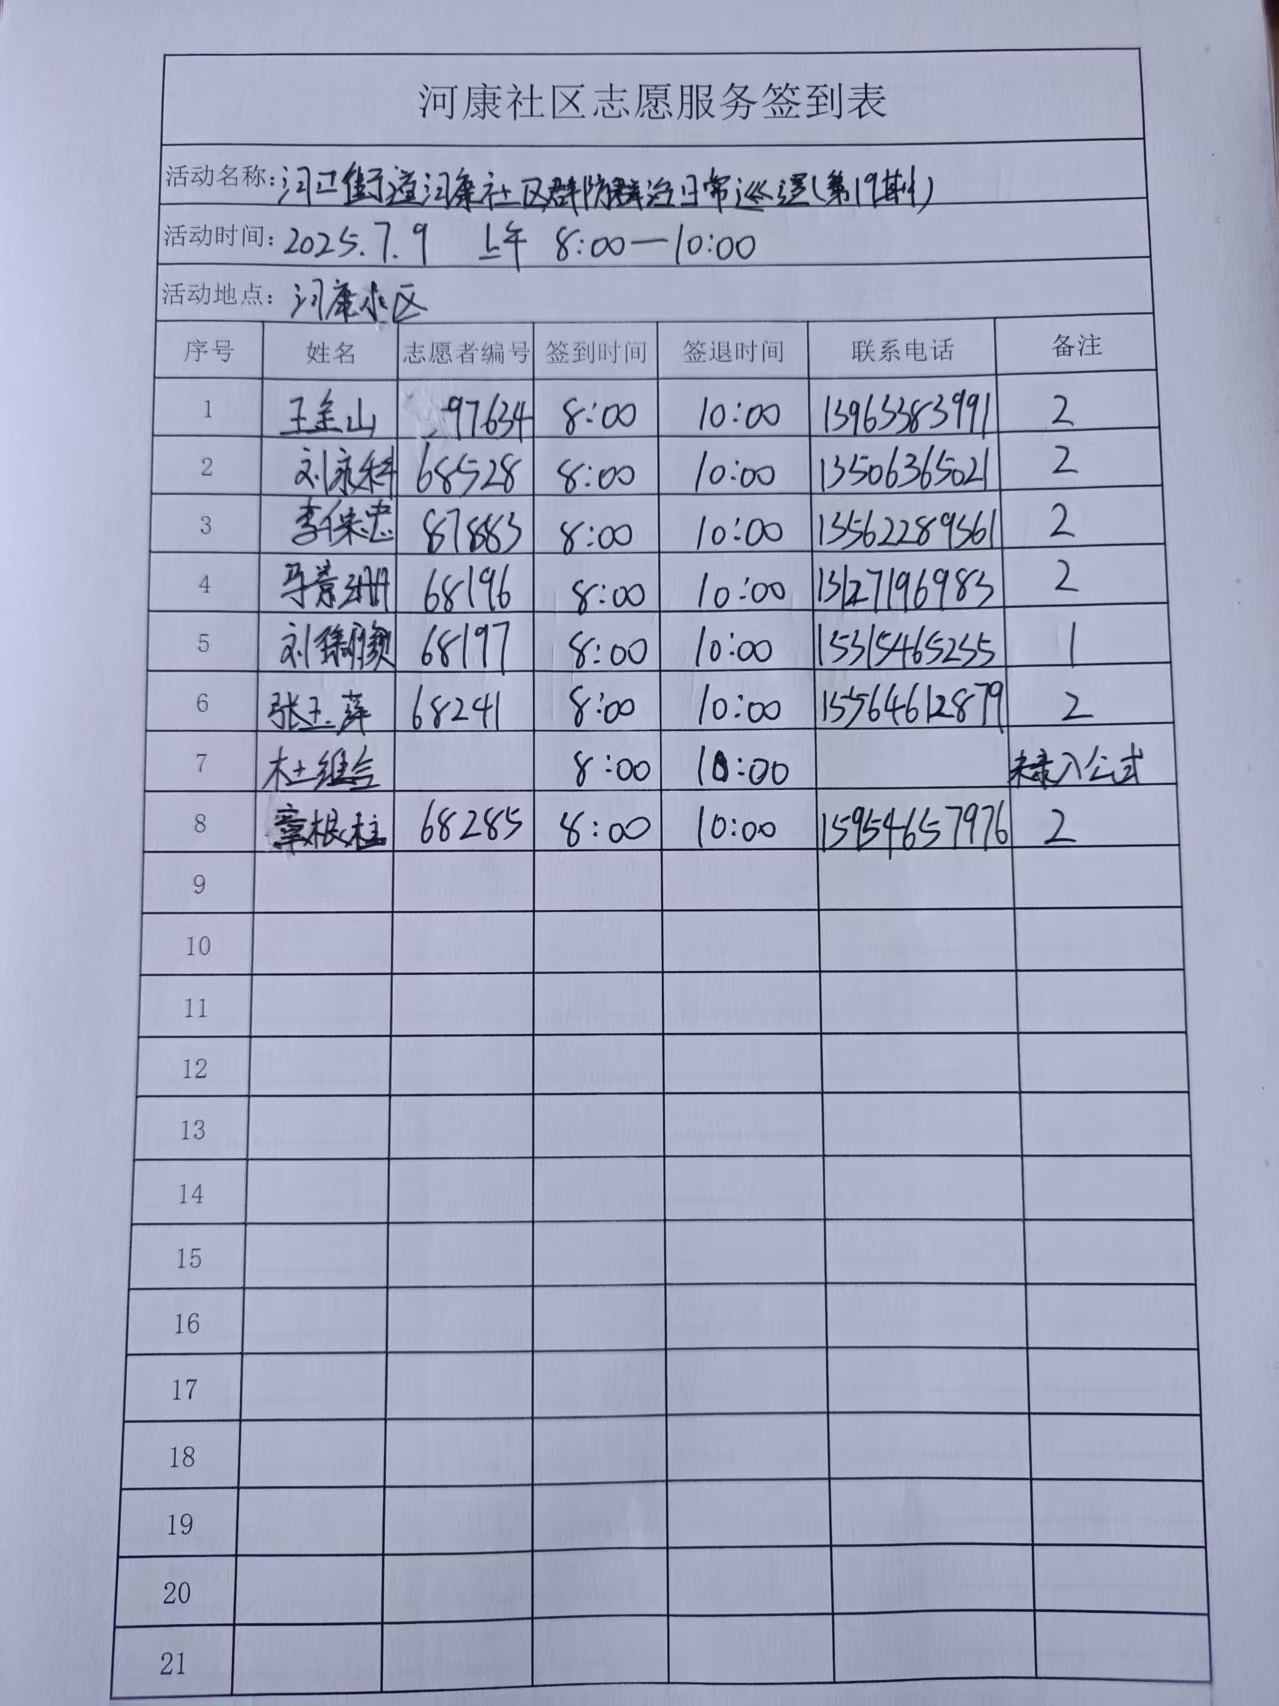 河康社区志愿服务签到表
活动名称:河口街道河康社区群防群治日常巡逻(第19期)
活动时间: 2025.7.9 上午 8:00—10:00
活动地点: 河康小区
序号 姓名 志愿者编号 签到时间 签退时间 联系电话 备注
1 王金山 97634 8:00 10:00 13963383991 2
2 刘永科 68528 8:00 10:00 13506365021 2
3 李保忠 87883 8:00 10:00 13562289561 2
4 马景珊 68196 8:00 10:00 13127196983 2
5 刘 68197 8:00 10:00 15315465255 1
6 张玉萍 68241 8:00 10:00 15564612879 2
7 杜维 8:00 10:00 未录入公式
8 章根柱 68285 8:00 10:00 15954657976 2
9
10
11
12
13
14
15
16
17
18
19
20
21